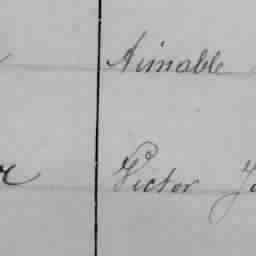 Aimable
Victor